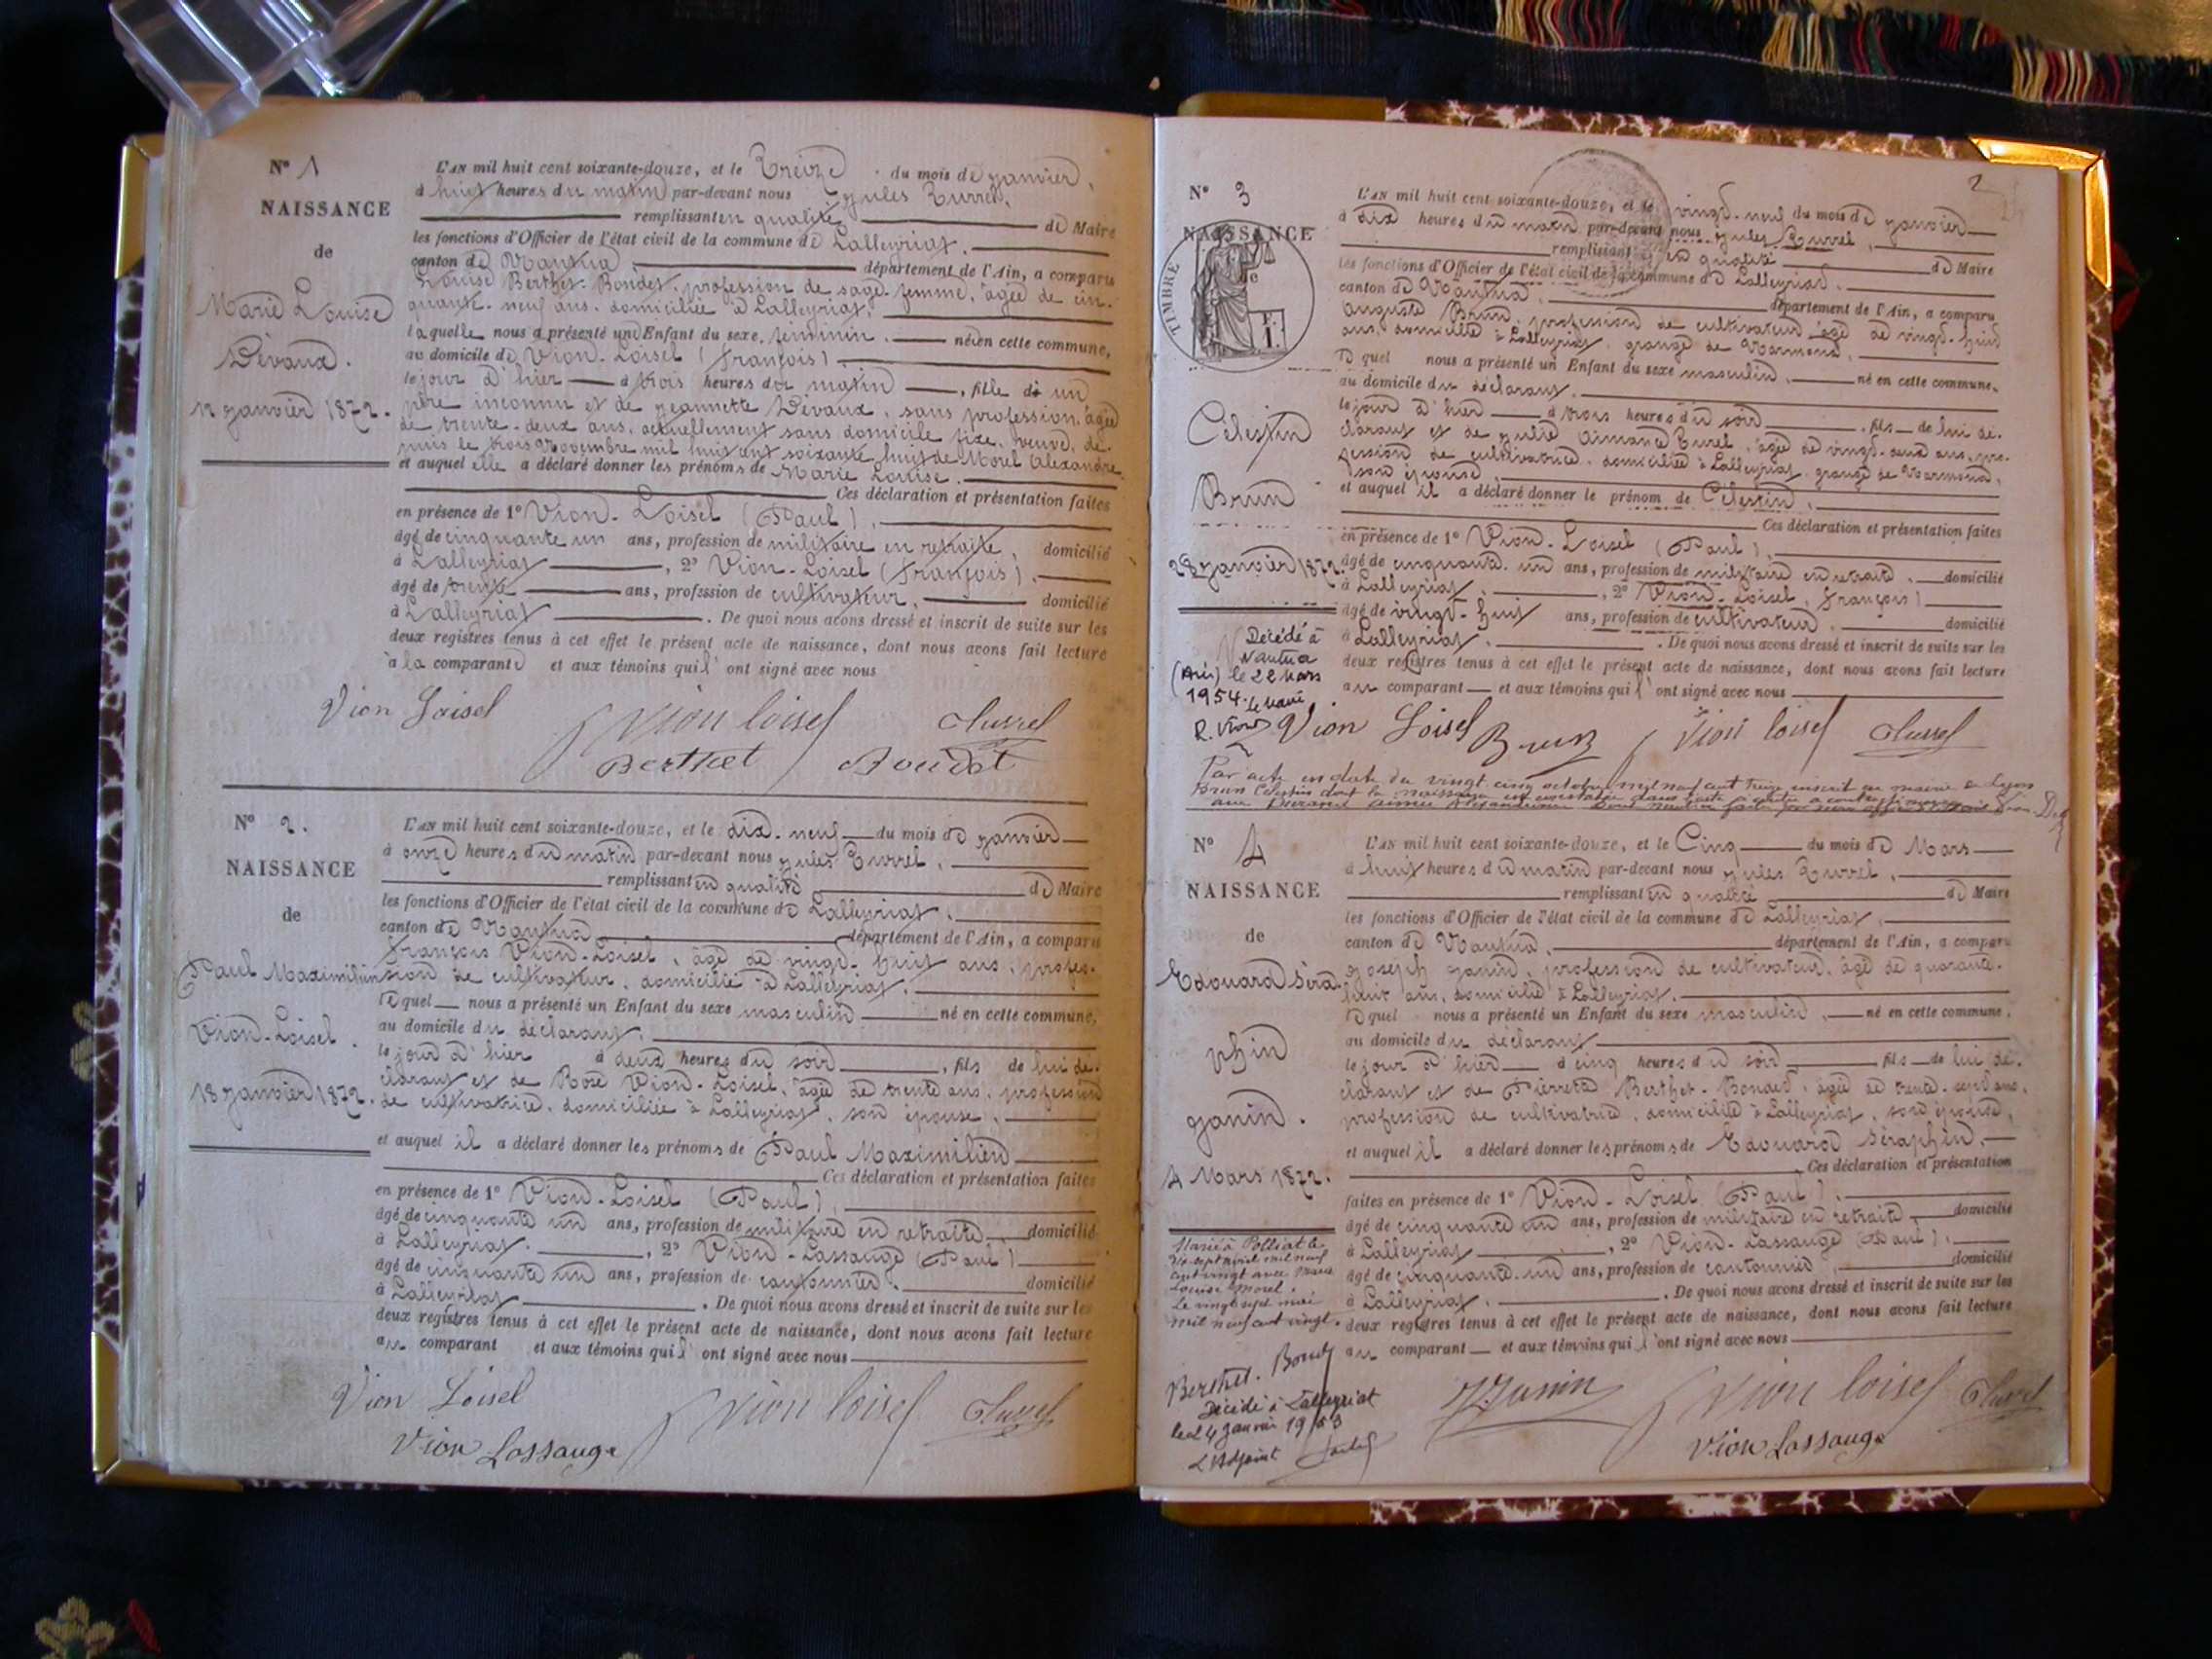 N° 1
NAISSANCE
de
Marie Louise
Dévaux.
12 janvier 1872.
L'AN mil huit cent soixante-douze, et le treize du mois de janvier,
à huit heures du matin par-devant nous Jules Turrel,
remplissant en qualité de Maire
les fonctions d'Officier de l'état civil de la commune de Lalleyriat,
canton de Nantua, département de l'Ain, a comparu
Louise Berthet-Bondet, profession de sage-femme, âgée de cin-
quante-neuf ans, domiciliée à Lalleyriat,
laquelle nous a présenté un Enfant du sexe féminin, né en cette commune,
au domicile de Vion-Loisel (françois),
le jour d'hier à trois heures du matin, fille de un
père inconnu et de Jeannette Dévaux, sans profession, âgée
de trente-deux ans, actuellement sans domicile fixe, veuve, de-
puis le trois Novembre mil huit cent soixante huit de Morel Alexandre
et auquel elle a déclaré donner les prénoms de Marie Louise.
Ces déclaration et présentation faites
en présence de 1° Vion-Loisel (Paul),
âgé de cinquante un ans, profession de militaire en retraite, domicilié
à Lalleyriat, 2° Vion-Loisel (françois),
âgé de trente ans, profession de cultivateur, domicilié
à Lalleyriat. De quoi nous avons dressé et inscrit de suite sur les
deux registres tenus à cet effet le présent acte de naissance, dont nous avons fait lecture
à la comparante et aux témoins qui l'ont signé avec nous
Vion Loisel Vion loisel Turrel
Berthet Boudet
N° 2.
NAISSANCE
de
Paul Maximilien
Vion-Loisel.
18 janvier 1872.
L'AN mil huit cent soixante-douze, et le dix-neuf du mois de janvier
à onze heures du matin par-devant nous Jules Turrel,
remplissant en qualité de Maire
les fonctions d'Officier de l'état civil de la commune de Lalleyriat,
canton de Nantua département de l'Ain, a comparu
françois Vion-Loisel, âgé de vingt-huit ans, profes-
sion de cultivateur, domicilié à Lalleyriat,
lequel nous a présenté un Enfant du sexe masculin né en cette commune,
au domicile du déclarant,
le jour d'hier à deux heures du soir, fils de lui dé-
clarant et de Rose Vion-Loisel, âgée de trente ans, profession
de cultivatrice, domiciliée à Lalleyriat, son épouse,
et auquel il a déclaré donner les prénoms de Paul Maximilien
Ces déclaration et présentation faites
en présence de 1° Vion-Loisel (Paul),
âgé de cinquante un ans, profession de militaire en retraite, domicilié
à Lalleyriat, 2° Vion-Lassauge (Paul)
âgé de cinquante un ans, profession de cantonnier, domicilié
à Lalleyriat. De quoi nous avons dressé et inscrit de suite sur les
deux registres tenus à cet effet le présent acte de naissance, dont nous avons fait lecture
au comparant et aux témoins qui l'ont signé avec nous
Vion Loisel Vion loisel Turrel
Vion Lassauge
2
N° 3
NAISSANCE
de
TIMBRE
Célestin
Brun
28 janvier 1872.
Décédé à
Nantua
(Ain) le 22 Mars
1954. Le Maire
L'AN mil huit cent soixante-douze, et le vingt-neuf du mois de janvier
à dix heures du matin par-devant nous Jules Turrel,
remplissant en qualité de Maire
les fonctions d'Officier de l'état civil de la commune de Lalleyriat,
canton de Nantua, département de l'Ain, a comparu
Auguste Brun, profession de cultivateur, âgé de vingt-huit
ans, domicilié à Lalleyriat, grange de
lequel nous a présenté un Enfant du sexe masculin, né en cette commune,
au domicile du déclarant,
le jour d'hier à trois heures du soir, fils de lui dé-
clarant et de Julie Aimande Turel, âgée de vingt-deux ans, pro-
fession de cultivatrice, domiciliée à Lalleyriat, grange de
son épouse,
et auquel il a déclaré donner le prénom de Célestin,
Ces déclaration et présentation faites
en présence de 1° Vion-Loisel (Paul),
âgé de cinquante-un ans, profession de militaire en retraite, domicilié
à Lalleyriat, 2° Vion-Loisel, françois)
âgé de vingt-huit ans, profession de cultivateur, domicilié
à Lalleyriat. De quoi nous avons dressé et inscrit de suite sur les
deux registres tenus à cet effet le présent acte de naissance, dont nous avons fait lecture
au comparant et aux témoins qui l'ont signé avec nous
Vion Loisel Brun Vion loisel Turrel
Par acte en date du vingt cinq octobre mil neuf cent treize inscrit en mairie de Lyon
Brun Célestin dont la naissance est constatée dans l'acte
N° 4
NAISSANCE
de
Edouard Séra-
phin
Janin.
4 Mars 1872.
Marié à Polliat le
dix-sept avril mil neuf
cent vingt avec Marie
Louise Morel.
Le vingt sept mai
mil neuf cent vingt.
Berthet-Bondet
Décédé à Lalleyriat
le 24 Janvier 1953
L'Adjoint
L'AN mil huit cent soixante-douze, et le Cinq du mois de Mars
à huit heures du matin par-devant nous Jules Turrel,
remplissant en qualité de Maire
les fonctions d'Officier de l'état civil de la commune de Lalleyriat,
canton de Nantua, département de l'Ain, a comparu
Joseph Janin, profession de cultivateur, âgé de quarante-
huit ans, domicilié à Lalleyriat,
lequel nous a présenté un Enfant du sexe masculin, né en cette commune,
au domicile du déclarant
le jour d'hier à cinq heures du soir fils de lui dé-
clarant et de Pierrette Berthet-Bondet, âgée de trente-sept ans,
profession de cultivatrice, domiciliée à Lalleyriat, son épouse,
et auquel il a déclaré donner les prénoms de Edouard Séraphin,
Ces déclaration et présentation
faites en présence de 1° Vion-Loisel (Paul),
âgé de cinquante un ans, profession de militaire en retraite, domicilié
à Lalleyriat, 2° Vion-Lassauge (Paul),
âgé de cinquante-un ans, profession de cantonnier, domicilié
à Lalleyriat. De quoi nous avons dressé et inscrit de suite sur les
deux registres tenus à cet effet le présent acte de naissance, dont nous avons fait lecture
au comparant et aux témoins qui l'ont signé avec nous
Janin Vion loisel Turrel
Vion Lassauge